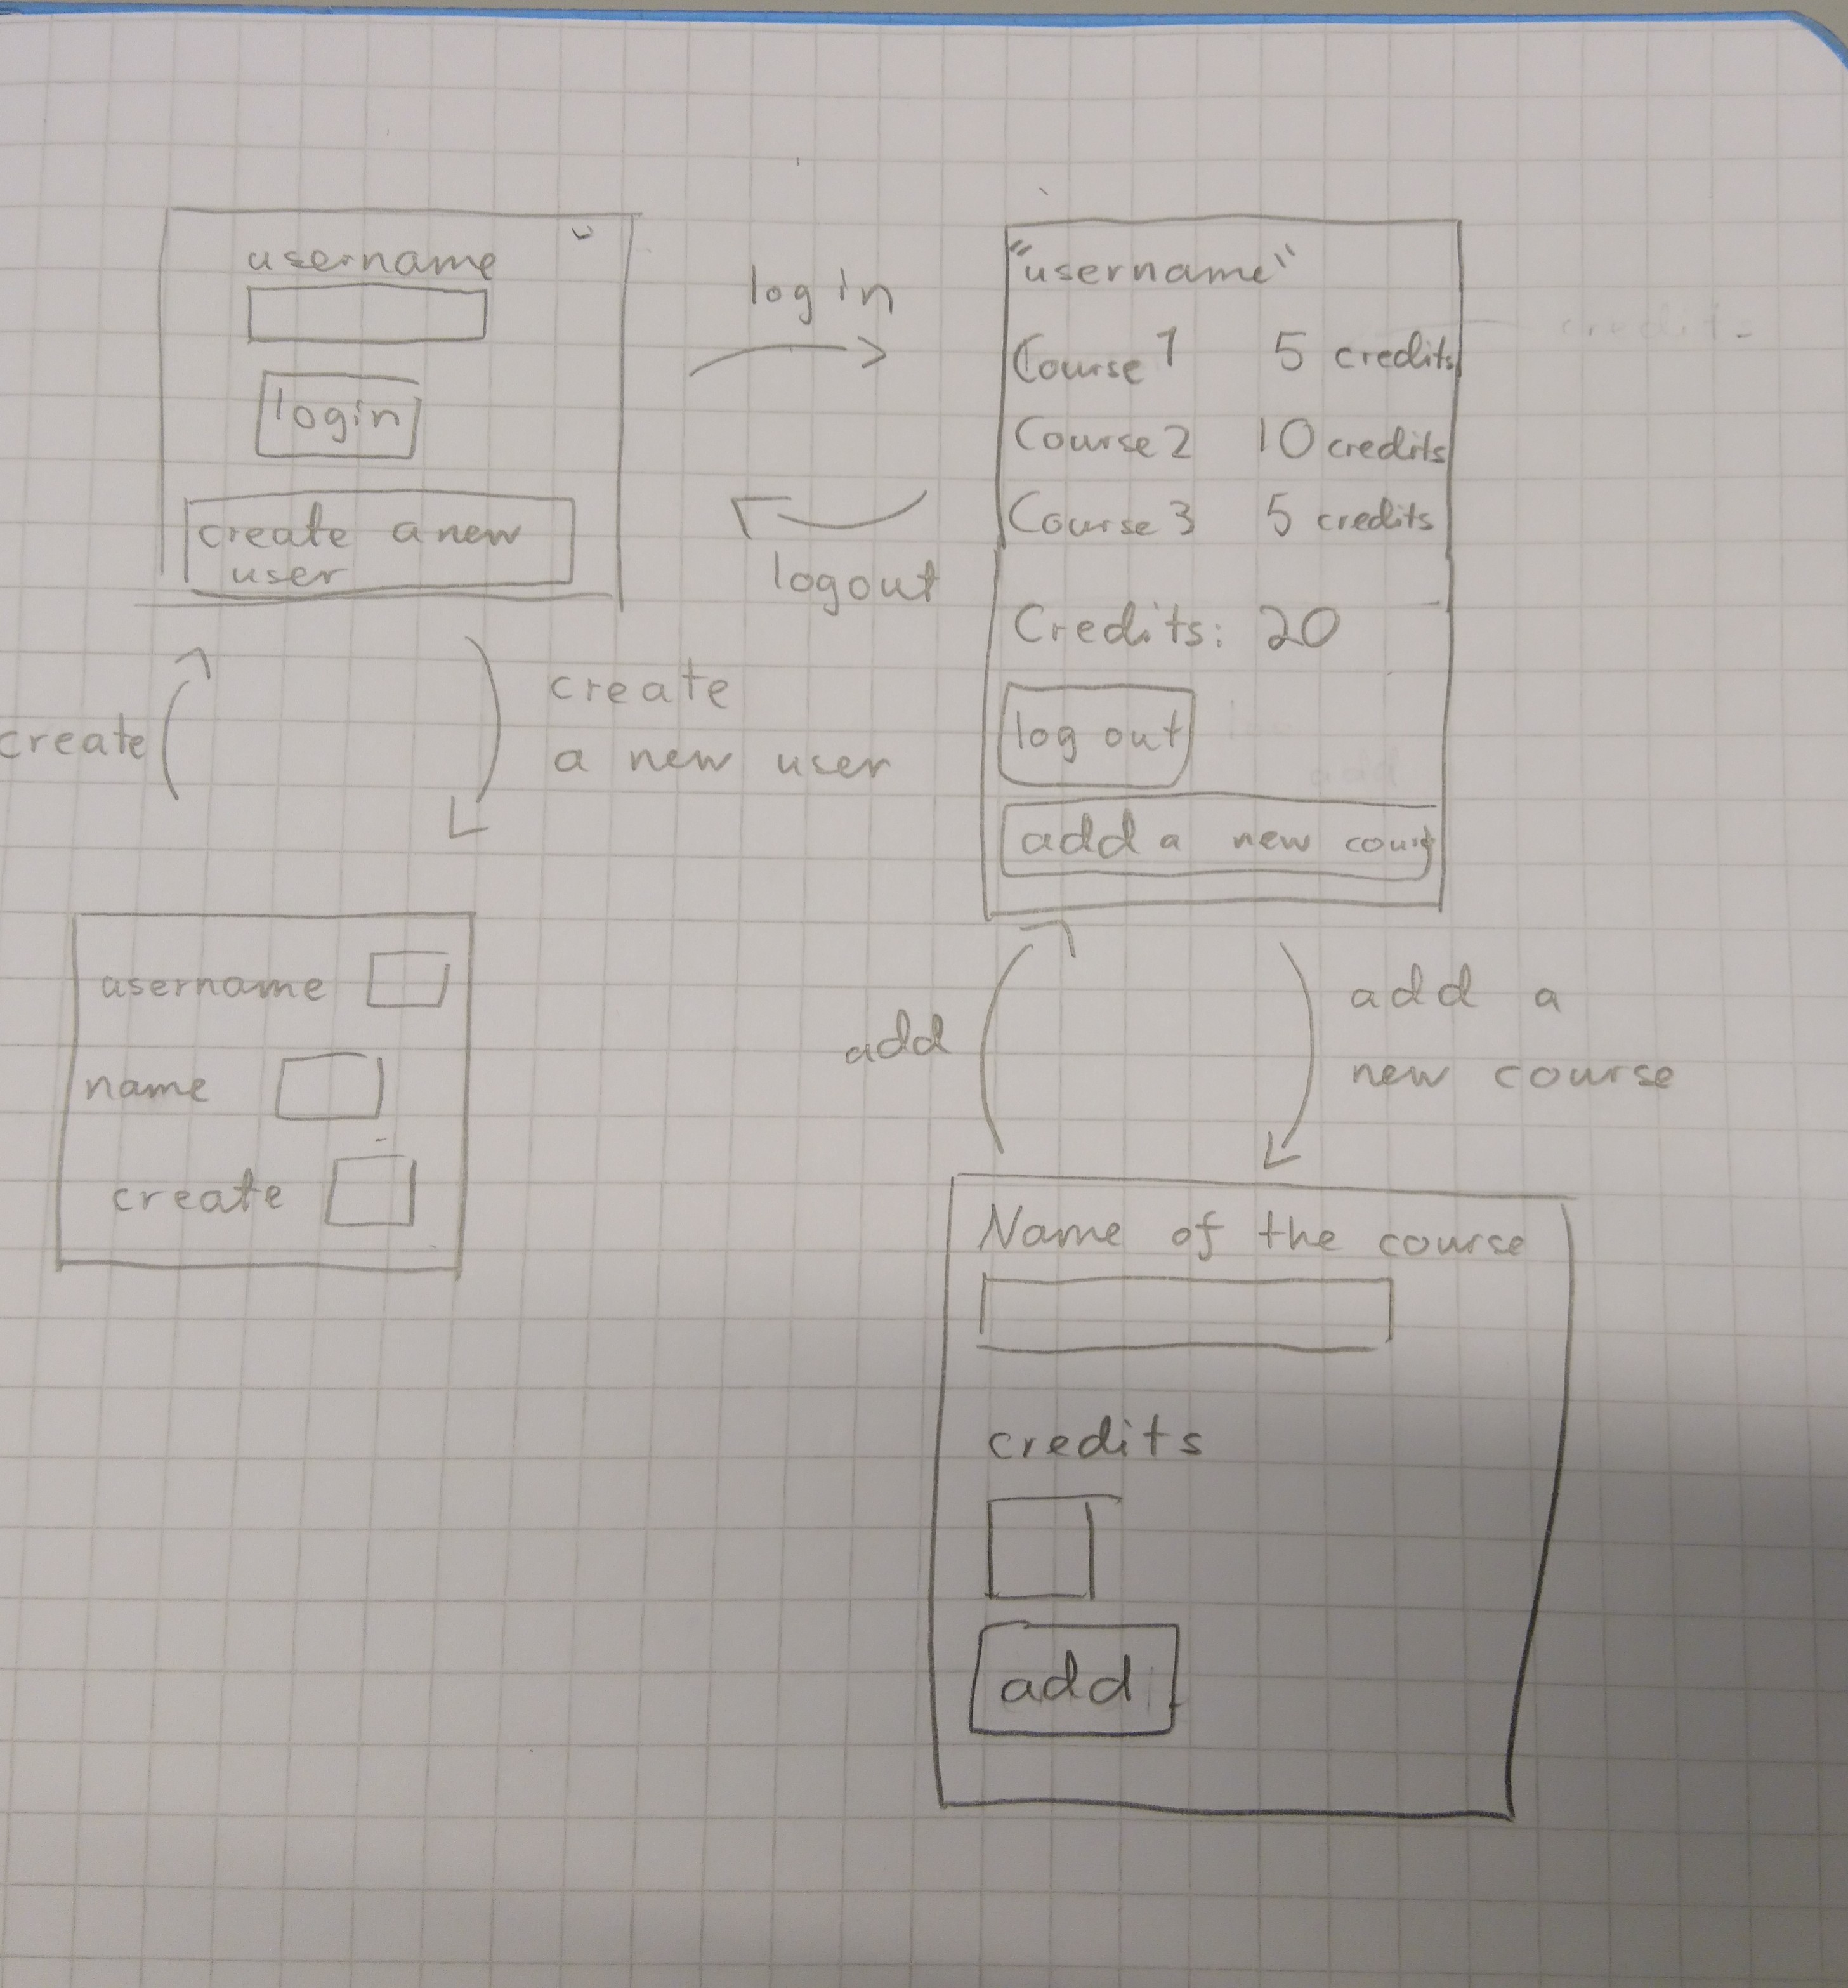 username
login
create a new
user
log in
logout
"username"
Course 1 5 credits
Course 2 10 credits
Course 3 5 credits
Credits: 20
log out
add a new
create
create
a new user
username
name
create
add
add a
new course
Name of the course
credits
add